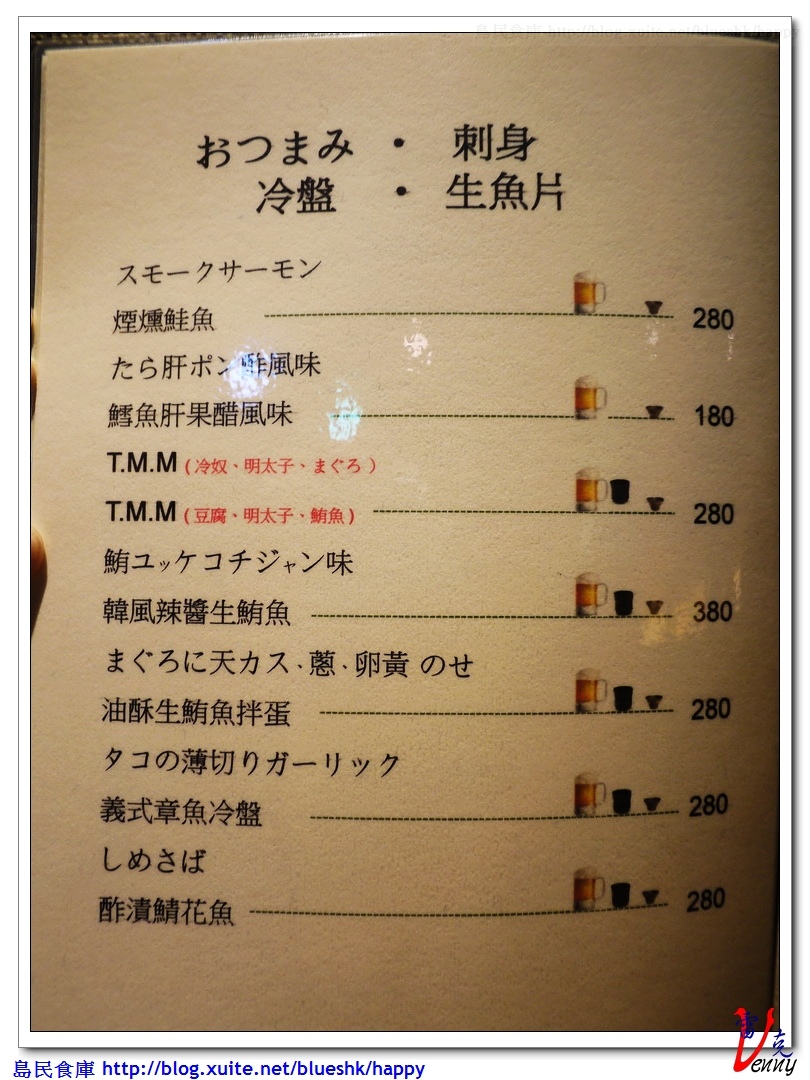 島民食庫 http://blog.xuite.net/blueshk/happy
おつまみ ・ 刺身
冷盤 ・ 生魚片
スモークサーモン
煙燻鮭魚 280
たら肝ポン酢風味
鱈魚肝果醋風味 180
T.M.M (冷奴、明太子、まぐろ)
T.M.M (豆腐、明太子、鮪魚) 280
鮪ユッケコチジャン味
韓風辣醬生鮪魚 380
まぐろに天カス、蔥、卵黃 のせ
油酥生鮪魚拌蛋 280
タコの薄切りガーリック
義式章魚冷盤 280
しめさば
酢漬鯖花魚 280
雷克
Venny
島民食庫 http://blog.xuite.net/blueshk/happy